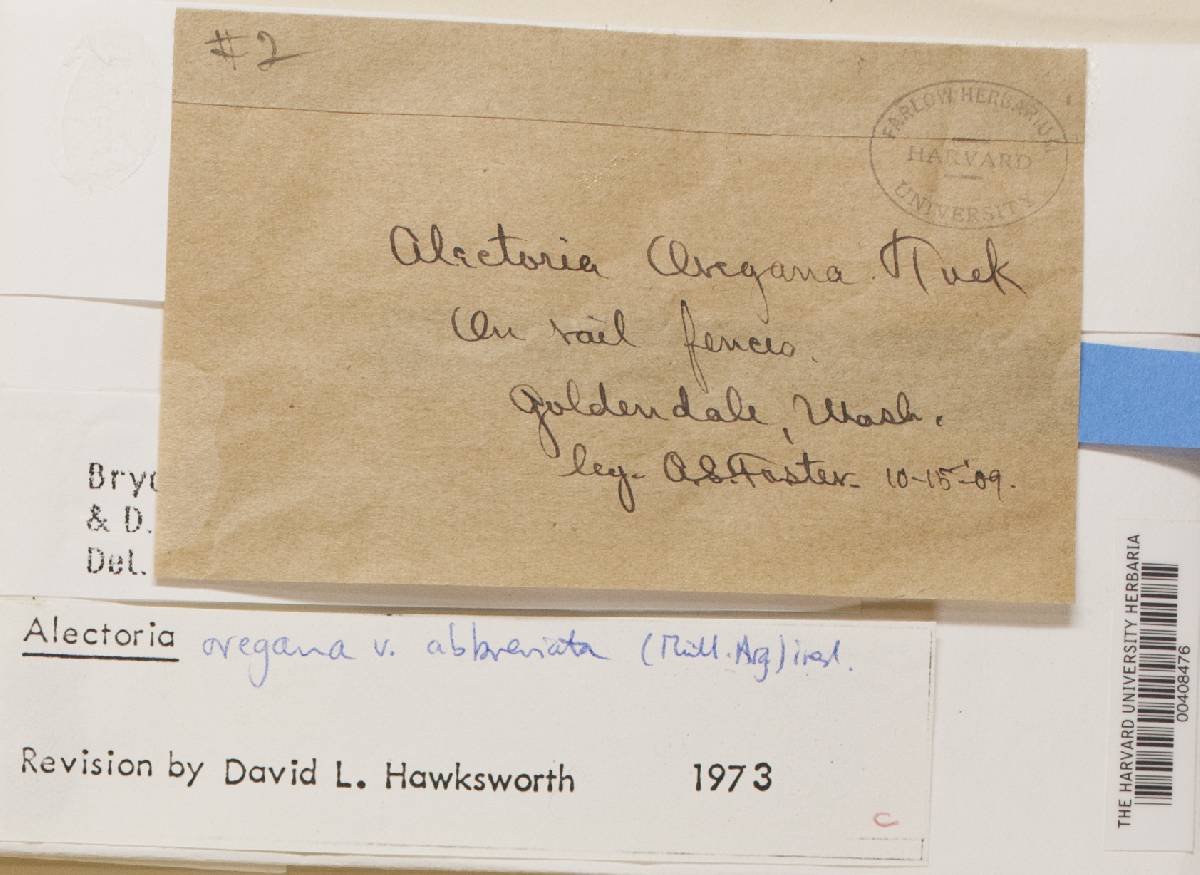 #2
FARLOW HERBARIUM
HARVARD
UNIVERSITY
Alectoria Oregana Tuck
On rail fences.
Goldendale, Wash.
leg. A.S. Foster. 10-15-'09.
Bry
& D.
Det.
Alectoria oregana v. abbreviata (Müll. Arg)
Revision by David L. Hawksworth 1973
c
THE HARVARD UNIVERSITY HERBARIA
00408476